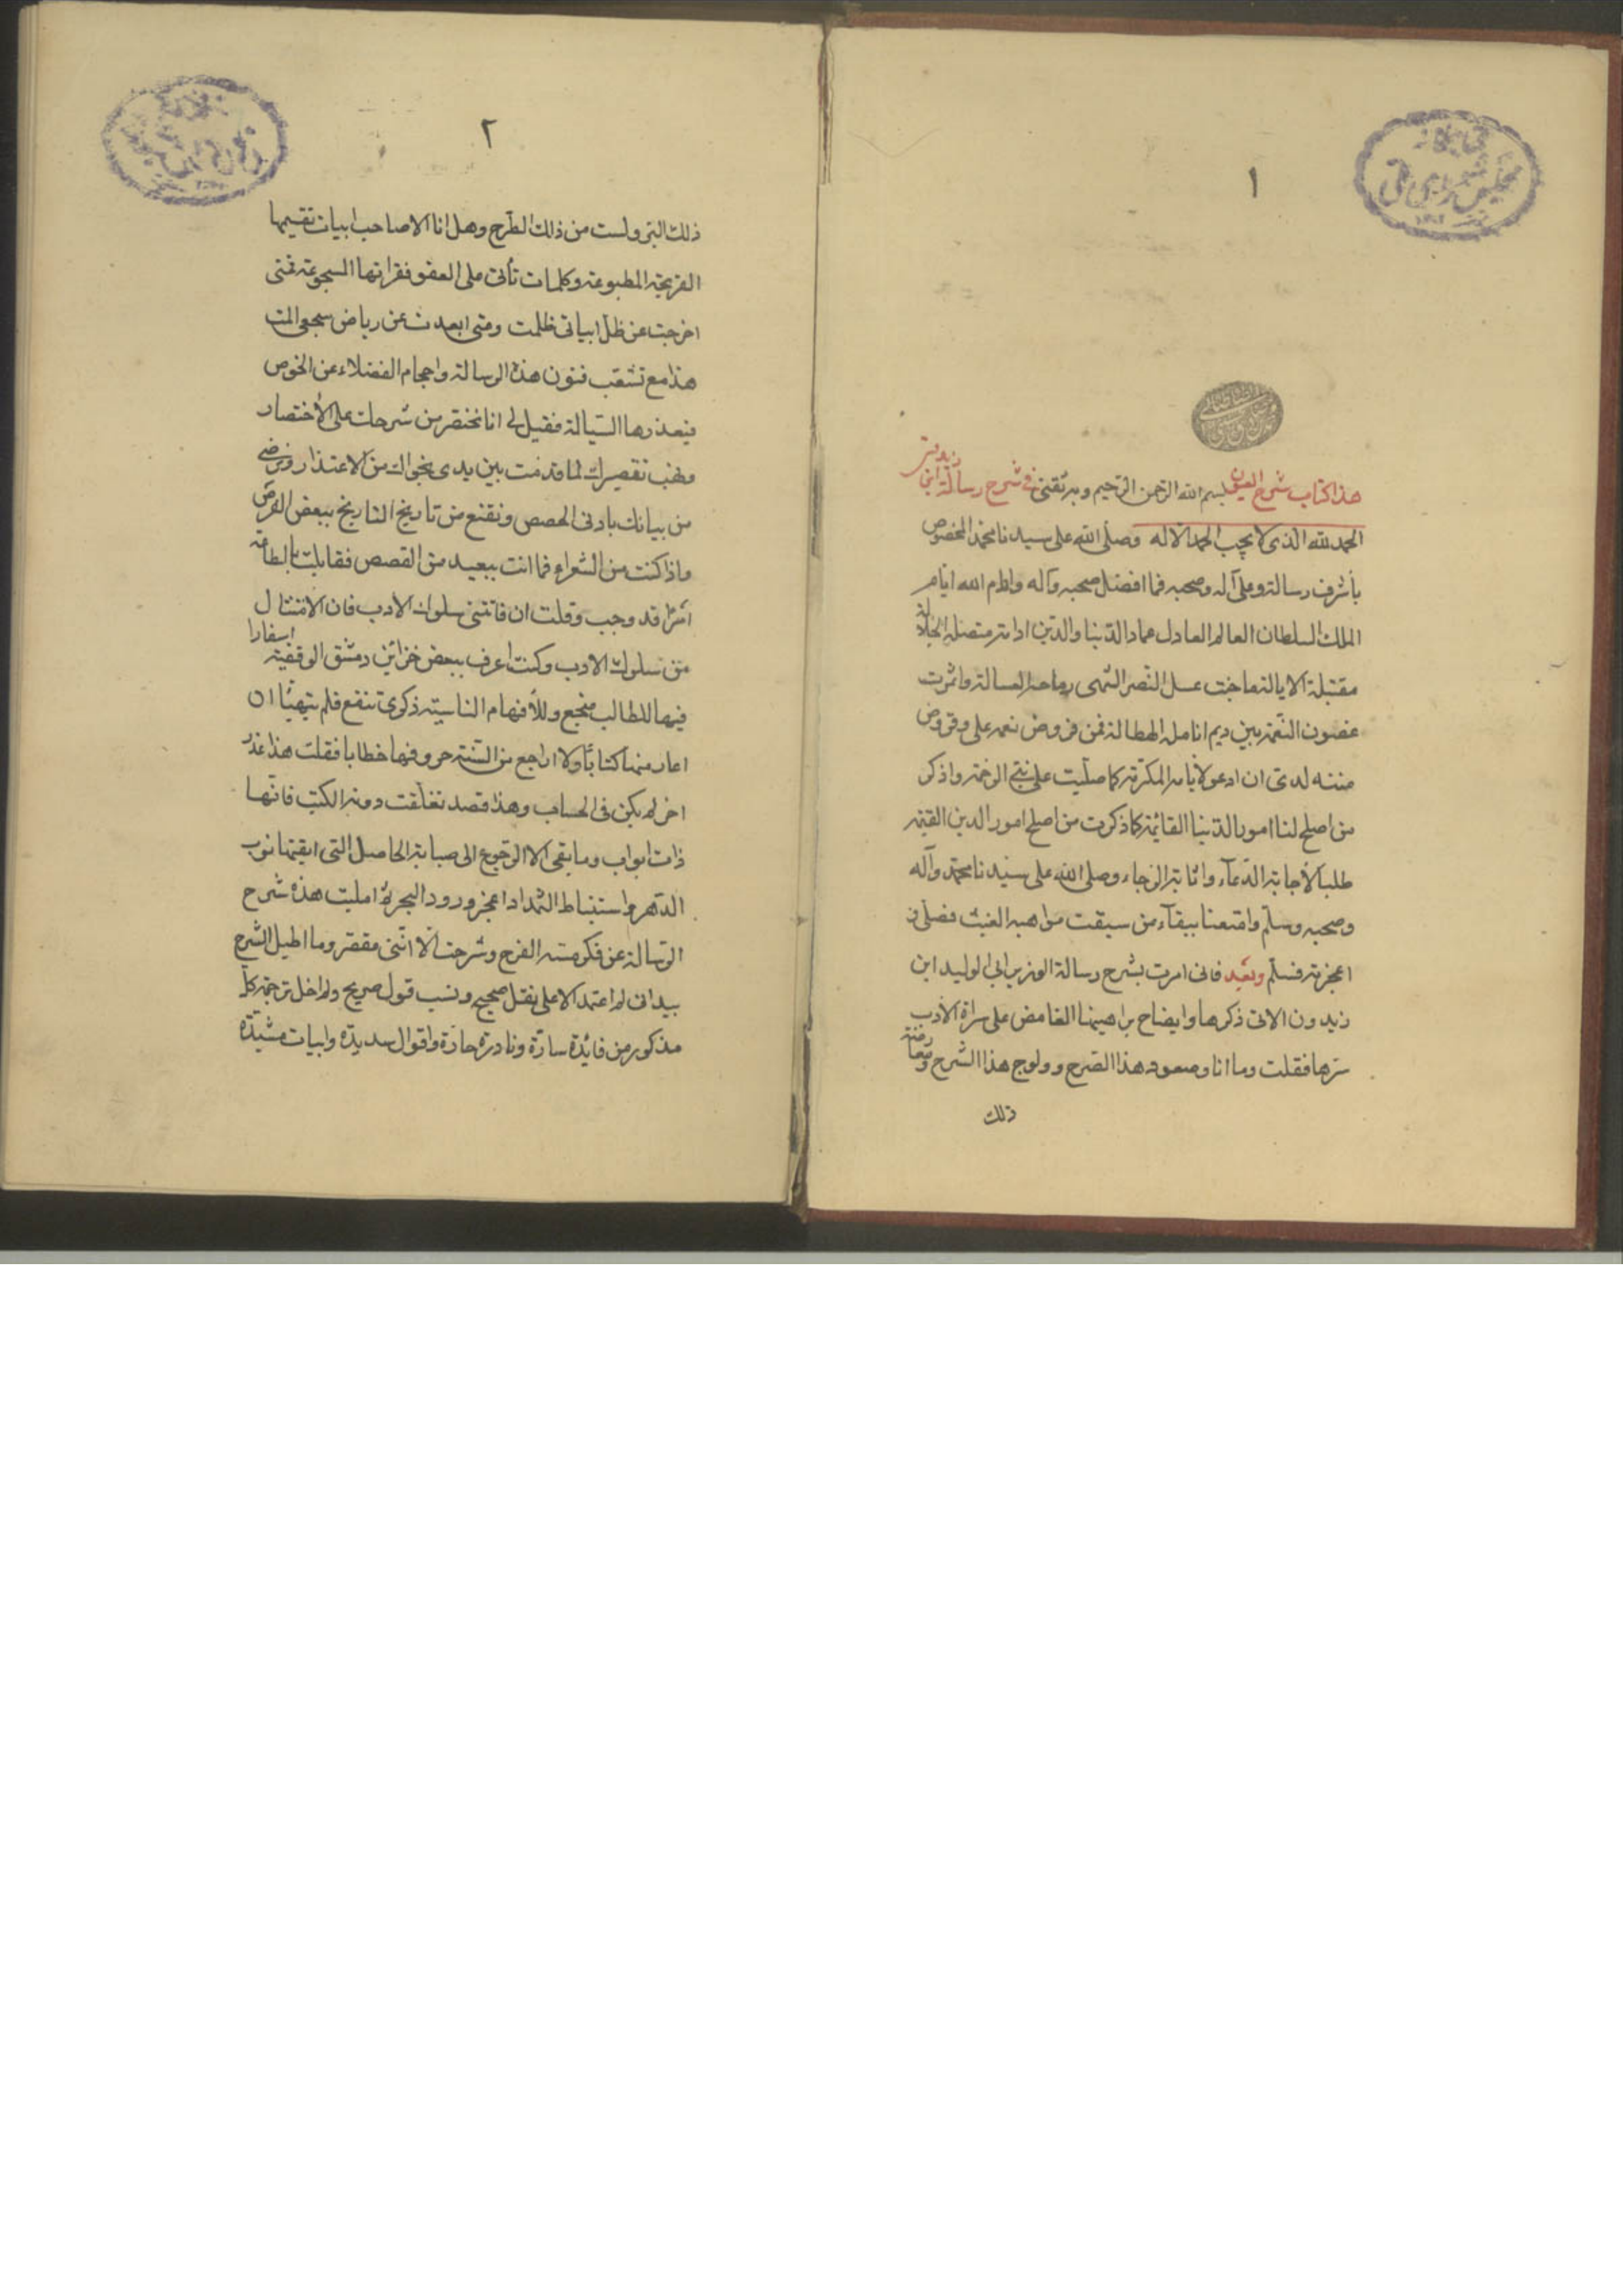 ١
هذا كتاب شرح العيون بسم الله الرحمن الرحيم وبه ثقتى فى شرح رسالة ابن زيدون
الحمد لله الذى لا يجب الحمد الا له وصلى الله على سيدنا محمد المخصوص
بأشرف رسالة وعلى آله وصحبه فما افضل صحبه وآله وادام الله ايام
الملك السلطان العالم العادل عماد الدنيا والدين ادامة متصلة الجلالة
مقتبلة الايالة ما جنت عسل النصر الشهى رماحه العسالة واثمرت
غصون النعم بين ديم انامله الهطالة فمن فروض نعمه على وقروض
مننه لدى ان ادعو لأيامه المكرمة كما صليت على نبى الرحمة واذكر
من اصلح لنا امور الدنيا القائمة كما ذكرت من اصلح امور الدين القيمة
طلبا لأجابة الدعآء واثابة الرجاء وصلى الله على سيدنا محمد وآله
وصحبه وسلم وامتعنا ببقآء من سبقت مواهبه الغيث فصلى فى
اعجزته فسلم وبعد فانى امرت بشرح رسالة الوزير ابى الوليد ابن
زيدون الاتى ذكرها وايضاح براهينها الغامض على سراة الأدب
سرها فقلت وما انا وصعود هذا الصرح وولوج هذا الشرح
ذلك
٢
ذلك البز ولست من ذلك الطرح وهل انا الا صاحب ابيات تقيمها
القريحة المطبوعة وكلمات تأتى على العفو فقراتها المسجوعة فمتى
اخرجت عن ظل ابياتى ظلمت ومتى ابعدت عن رياض سجعى المت
هذا مع تشعب فنون هذه الرسالة واحجام الفضلاء عن الخوض
فقيل لى انا نختصر من شرحك على الأختصار
ونهب تقصيرك لما قدمت بين يدى نجواك من الاعتذار ونرضى
من بيانك بادنى الحصص ونقنع من تاريخ التاريخ ببعض الفرص
واذا كنت من الشعراء فما انت ببعيد من القصص فقابلت بالطاعة
امرًا قد وجب وقلت ان فاتنى سلوك الادب فان الامتثال
من سلوك الادب وكنت اعرف ببعض خزائن دمشق الوقفية اسفارا
فيها للطالب منجع وللأفهام الناسية ذكرى تنفع فلم يتهيأ ان
اعار منها كتابًا ولا اراجع من السنة حروفها خطابا فقلت هذا عذر
اخر لم يكن فى الحساب وهذا قصد تغلقت دونه الكتب فانها
ذات ابواب وما بقى الا الرجوع الى صبابة الحاصل التى ابقيتها نوب
الدهر واستنباط الثمد اذا عجز ورود البحر امليت هذه شرح
الرسالة عن فكر مسه القرح وشرحت الا اننى مقصر وما اطيل الشرح
بيد انى لم اعتمد الا على نقل صحيح ونسب قول صريح ولم اخل ترجمة كل
مذكور من فايدة سارة ونادرة حارة واقوال سديدة وابيات مشيدة